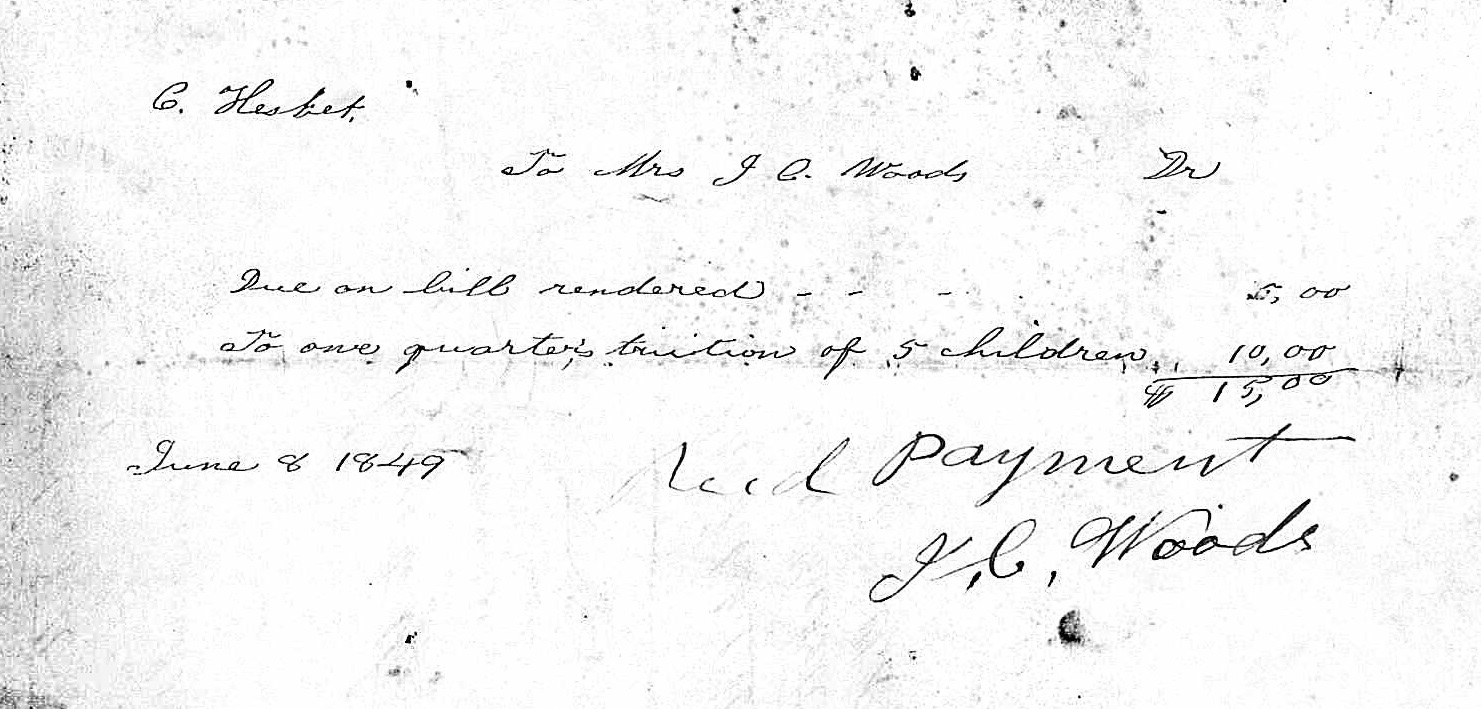 C. Hesket.
To Mrs J C. Woods Dr
Due on bill rendered - - - 5,00
To one quarter's tuition of 5 children, 10,00
$ 15,00
June 8 1849
Recd Payment
J. C. Woods